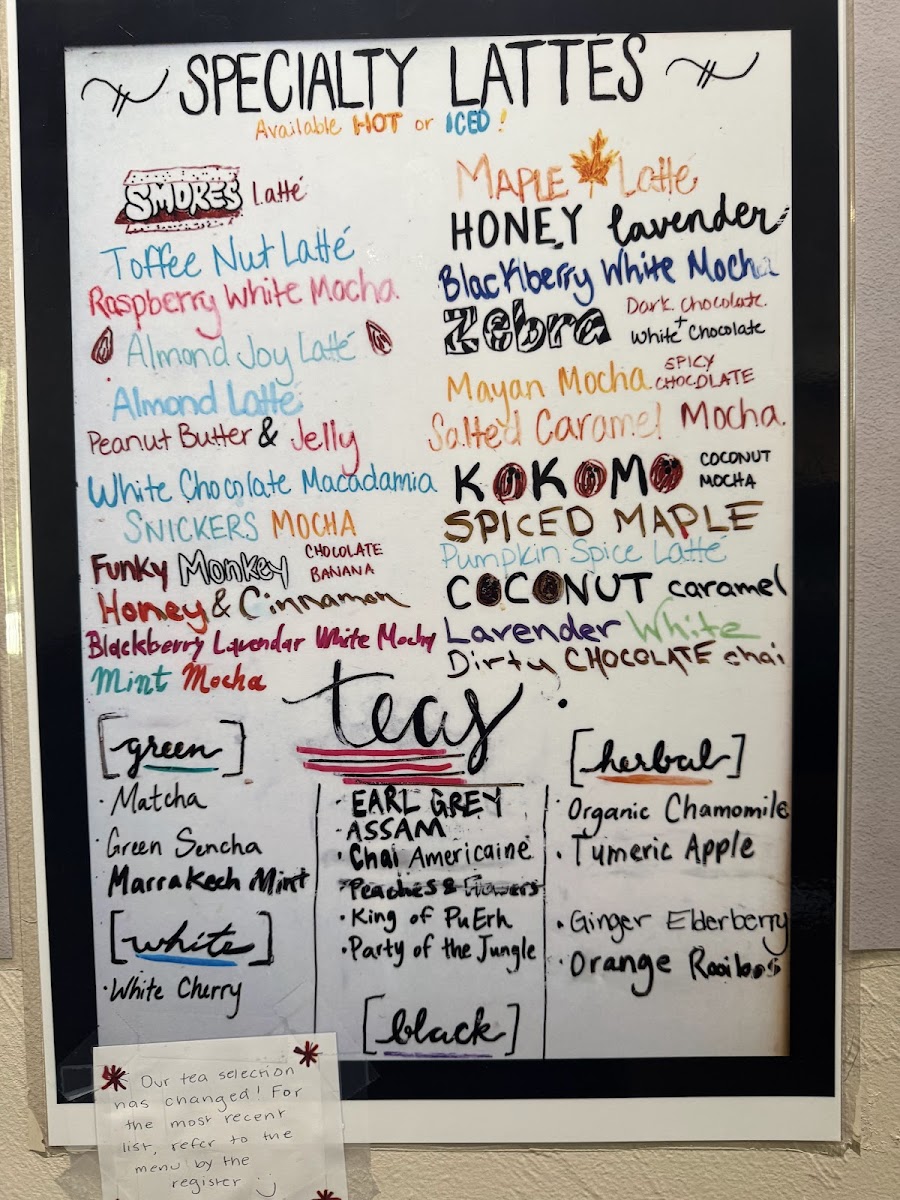 SPECIALTY LATTÉS
Available HOT or ICED!
SMORES Latté
Toffee Nut Latté
Raspberry White Mocha
Almond Joy Latté
Almond Latté
Peanut Butter & Jelly
White Chocolate Macadamia
SNICKERS MOCHA
Funky Monkey CHOCOLATE BANANA
Honey & Cinnamon
Blackberry Lavendar White Mocha
Mint Mocha
MAPLE Latté
HONEY lavender
Blackberry White Mocha
Zebra Dark Chocolate + White Chocolate
Mayan Mocha SPICY CHOCOLATE
Salted Caramel Mocha
KOKOMO COCONUT MOCHA
SPICED MAPLE
Pumpkin Spice Latté
COCONUT caramel
Lavender White
Dirty CHOCOLATE chai
teas
[green]
· Matcha
· Green Sencha
Marrakech Mint
[white]
· White Cherry
· EARL GREY
· ASSAM
· Chai Americaine
· Peaches & Flowers
· King of PuErh
· Party of the Jungle
[black]
[herbal]
Organic Chamomile
· Tumeric Apple
· Ginger Elderberry
· Orange Rooibos
Our tea selection
has changed! For
the most recent
list, refer to the
menu by the
register :)